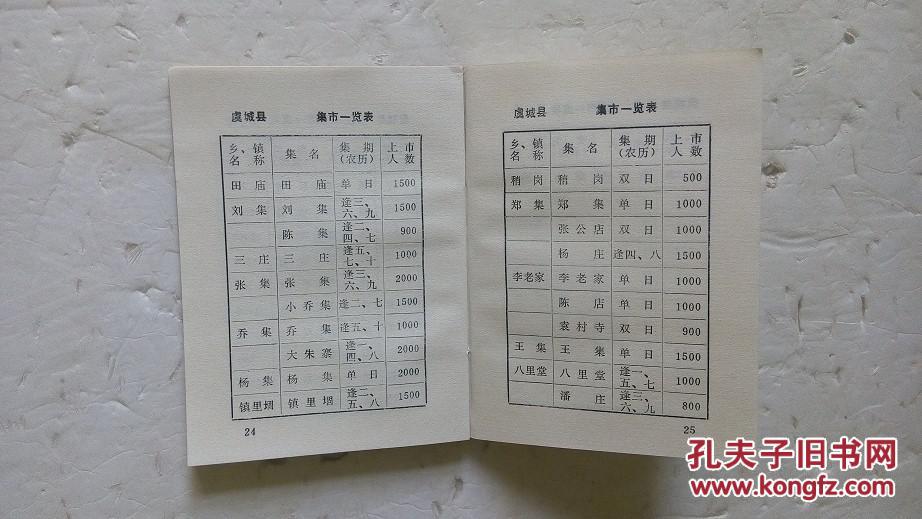 虞城县 集市一览表
乡、镇名称 集名 集期(农历) 上市人数
田庙 田庙 单日 1500
刘集 刘集 逢三、六、九 1500
陈集 逢二、四、七 900
三庄 三庄 逢五、七、十 1000
张集 张集 逢三、六、九 2000
小乔集 逢二、七 1500
乔集 乔集 逢五、十 1000
大朱寨 逢一、四、八 2000
杨集 杨集 单日 2000
镇里堌 镇里堌 逢二、五、八 1500
24
虞城县 集市一览表
乡、镇名称 集名 集期(农历) 上市人数
稍岗 稍岗 双日 500
郑集 郑集 单日 1000
张公店 双日 1000
杨庄 逢四、八 1500
李老家 李老家 单日 1000
陈店 单日 1000
袁村寺 双日 900
王集 王集 单日 1500
八里堂 八里堂 逢一、五、七 1000
潘庄 逢三、六、九 800
25
孔夫子旧书网
www.kongfz.com